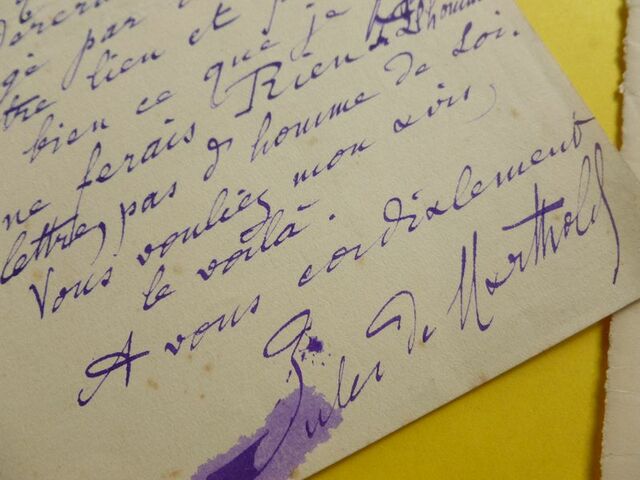 gé par
tre lien et
bien ce que je
ne ferais Rien de l'homme
lettres, pas d'homme de Loi.
Vous vouliez mon avis,
le voilà.
A vous cordialement
Jules De Marthold